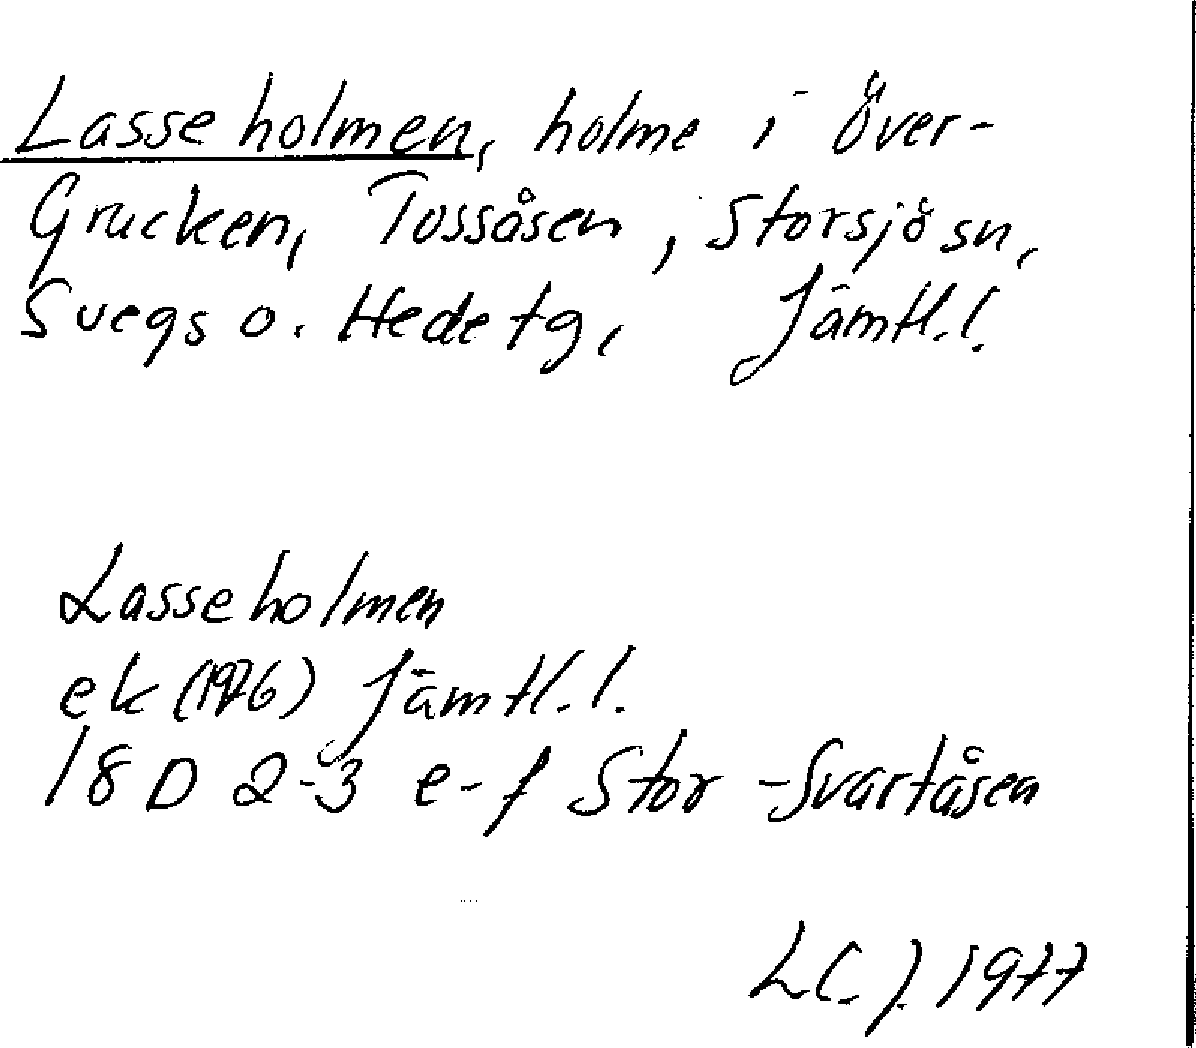 Lasseholmen, holme i Över-
Grucken, Tossåsen, Storsjö sn,
Svegs o. Hede tg, Jämtl. l.
Lasseholmen
ek (1976) Jämtl. l.
18D 2-3 e-f Stor-Svartåsen
1977